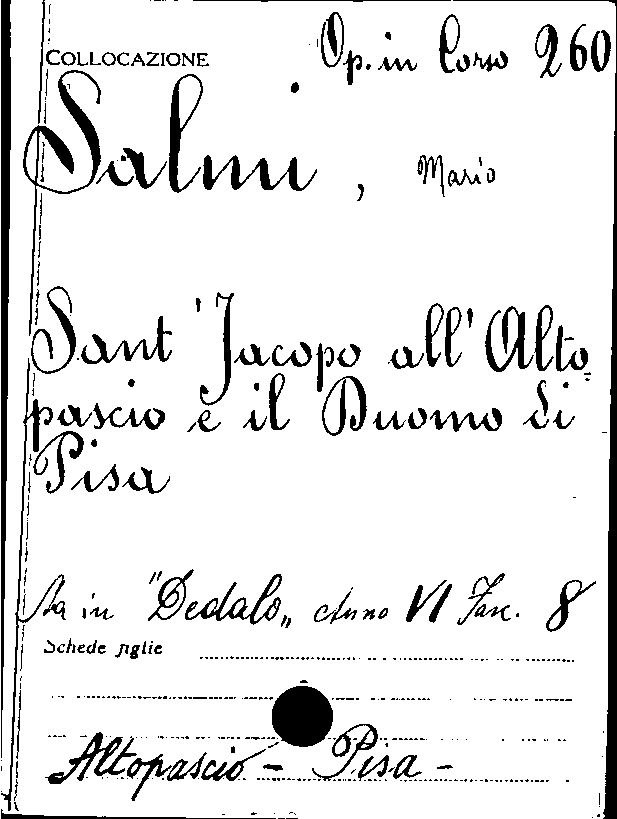 COLLOCAZIONE Op. in Corso 260
Salmi, Mario
Sant'Jacopo all'Alto=
pascio e il Duomo di
Pisa
Sta in "Dedalo„ Anno VI Fasc. 8
Schede figlie
Altopascio - Pisa -